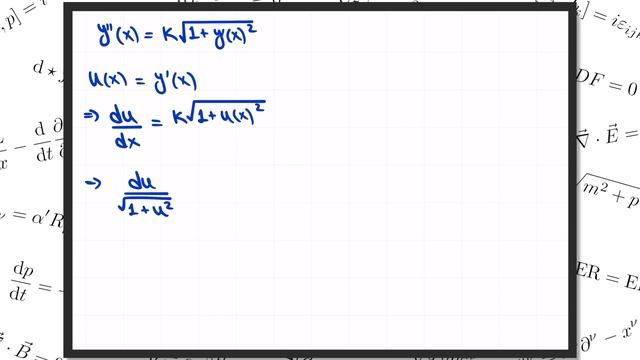 y''(x) = k√(1+y(x)²)
u(x) = y'(x)
⇒ du/dx = k√(1+u(x)²)
⇒ du/√(1+u²)
, p] =
d⋆
x − d/dt ∂
ν = α'R
dp/dt = −
· B⃗
] = iε_ijk
DF = 0
∇⃗ · E⃗ =
√m² + p
ER = EPR
∂^ν − x^ν